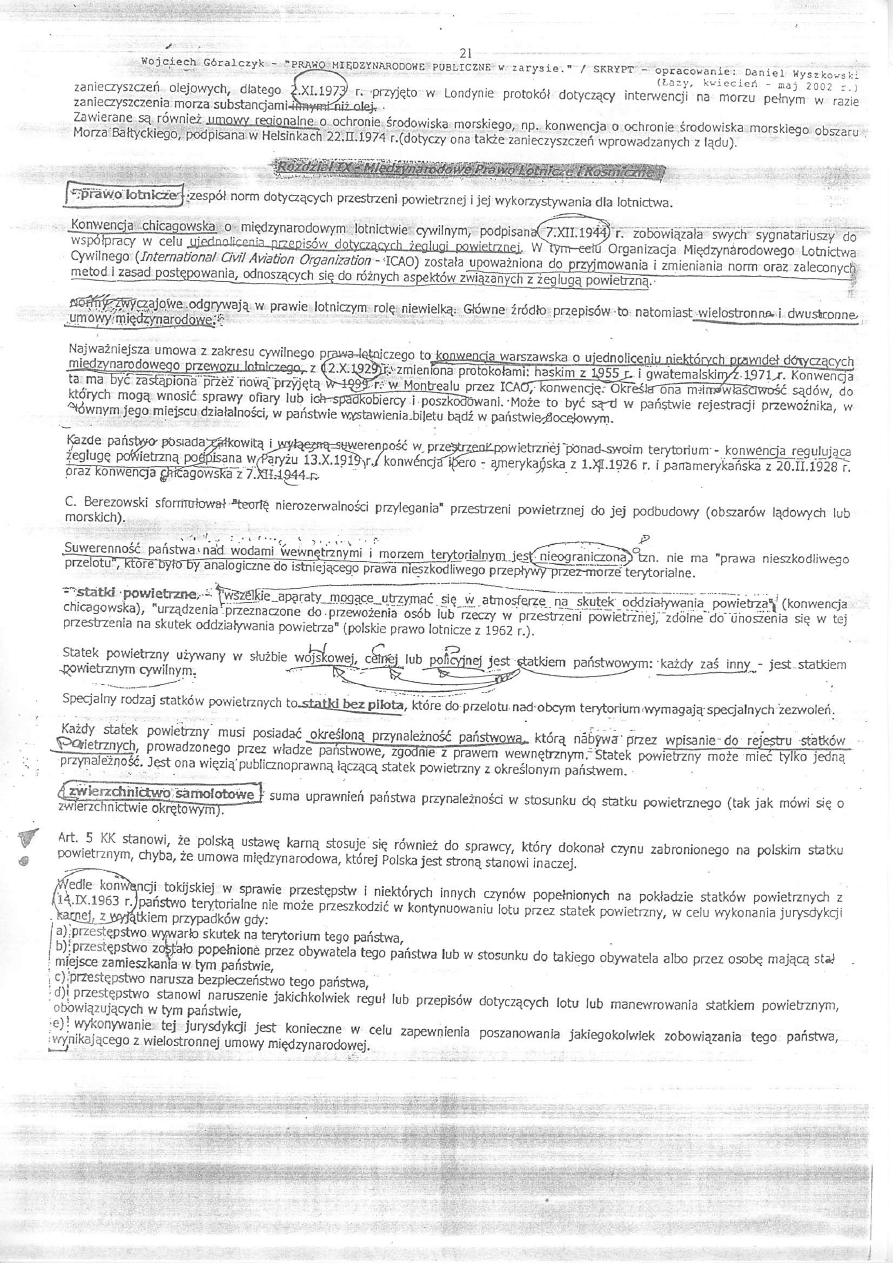 21
Wojciech Góralczyk - "PRAWO MIĘDZYNARODOWE PUBLICZNE w zarysie." / SKRYPT - opracowanie: Daniel Wyszkowski
(Łazy, kwiecień - maj 2002 r.)
zanieczyszczeń olejowych, dlatego 2.XI.1973 r. przyjęto w Londynie protokół dotyczący interwencji na morzu pełnym w razie
zanieczyszczenia morza substancjami innymi niż olej.
Zawierane są również umowy regionalne o ochronie środowiska morskiego, np. konwencja o ochronie środowiska morskiego obszaru
Morza Bałtyckiego, podpisana w Helsinkach 22.II.1974 r.(dotyczy ona także zanieczyszczeń wprowadzanych z lądu).
Rozdział IX - Międzynarodowe Prawo Lotnicze i Kosmiczne
prawo lotnicze - zespół norm dotyczących przestrzeni powietrznej i jej wykorzystywania dla lotnictwa.
Konwencja chicagowska o międzynarodowym lotnictwie cywilnym, podpisana 7.XII.1944 r. zobowiązała swych sygnatariuszy do
współpracy w celu ujednolicenia przepisów dotyczących żeglugi powietrznej. W tym celu Organizacja Międzynarodowego Lotnictwa
Cywilnego (International Civil Aviation Organization - ICAO) została upoważniona do przyjmowania i zmieniania norm oraz zaleconych
metod i zasad postępowania, odnoszących się do różnych aspektów związanych z żeglugą powietrzną.
Normy zwyczajowe odgrywają w prawie lotniczym rolę niewielką. Główne źródło przepisów to natomiast wielostronne i dwustronne
umowy międzynarodowe.
Najważniejsza umowa z zakresu cywilnego prawa lotniczego to konwencja warszawska o ujednoliceniu niektórych prawideł dotyczących
międzynarodowego przewozu lotniczego, z 12.X.1929 r. zmieniona protokołami: haskim z 1955 r. i gwatemalskim z 1971 r. Konwencja
ta ma być zastąpiona przez nową przyjętą w 1999 r. w Montrealu przez ICAO, konwencję. Określa ona m.in. właściwość sądów, do
których mogą wnosić sprawy ofiary lub ich spadkobiercy i poszkodowani. Może to być sąd w państwie rejestracji przewoźnika, w
głównym jego miejscu działalności, w państwie wystawienia biletu bądź w państwie docelowym.
Każde państwo posiada całkowitą i wyłączną suwerenność w przestrzeni powietrznej ponad swoim terytorium - konwencja regulująca
żeglugę powietrzną podpisana w Paryżu 13.X.1919 r., konwencja ibero - amerykańska z 1.XI.1926 r. i panamerykańska z 20.II.1928 r.
oraz konwencja chicagowska z 7.XII.1944 r.
C. Berezowski sformułował "teorię nierozerwalności przylegania" przestrzeni powietrznej do jej podbudowy (obszarów lądowych lub
morskich).
Suwerenność państwa nad wodami wewnętrznymi i morzem terytorialnym jest nieograniczona, tzn. nie ma "prawa nieszkodliwego
przelotu", które było by analogiczne do istniejącego prawa nieszkodliwego przepływu przez morze terytorialne.
statki powietrzne - "wszelkie aparaty mogące utrzymać się w atmosferze na skutek oddziaływania powietrza" (konwencja
chicagowska), "urządzenia przeznaczone do przewożenia osób lub rzeczy w przestrzeni powietrznej, zdolne do unoszenia się w tej
przestrzenia na skutek oddziaływania powietrza" (polskie prawo lotnicze z 1962 r.).
Statek powietrzny używany w służbie wojskowej, celnej lub policyjnej jest statkiem państwowym: każdy zaś inny - jest statkiem
powietrznym cywilnym.
Specjalny rodzaj statków powietrznych to statki bez pilota, które do przelotu nad obcym terytorium wymagają specjalnych zezwoleń.
Każdy statek powietrzny musi posiadać określoną przynależność państwową, którą nabywa przez wpisanie do rejestru statków
powietrznych, prowadzonego przez władze państwowe, zgodnie z prawem wewnętrznym. Statek powietrzny może mieć tylko jedną
przynależność. Jest ona więzią publicznoprawną łączącą statek powietrzny z określonym państwem.
zwierzchnictwo samolotowe - suma uprawnień państwa przynależności w stosunku do statku powietrznego (tak jak mówi się o
zwierzchnictwie okrętowym).
Art. 5 KK stanowi, że polską ustawę karną stosuje się również do sprawcy, który dokonał czynu zabronionego na polskim statku
powietrznym, chyba, że umowa międzynarodowa, której Polska jest stroną stanowi inaczej.
Wedle konwencji tokijskiej w sprawie przestępstw i niektórych innych czynów popełnionych na pokładzie statków powietrznych z
14.IX.1963 r. państwo terytorialne nie może przeszkodzić w kontynuowaniu lotu przez statek powietrzny, w celu wykonania jurysdykcji
karnej, z wyjątkiem przypadków gdy:
a) przestępstwo wywarło skutek na terytorium tego państwa,
b) przestępstwo zostało popełnione przez obywatela tego państwa lub w stosunku do takiego obywatela albo przez osobę mającą stał
miejsce zamieszkania w tym państwie,
c) przestępstwo narusza bezpieczeństwo tego państwa,
d) przestępstwo stanowi naruszenie jakichkolwiek reguł lub przepisów dotyczących lotu lub manewrowania statkiem powietrznym,
obowiązujących w tym państwie,
e) wykonywanie tej jurysdykcji jest konieczne w celu zapewnienia poszanowania jakiegokolwiek zobowiązania tego państwa,
wynikającego z wielostronnej umowy międzynarodowej.